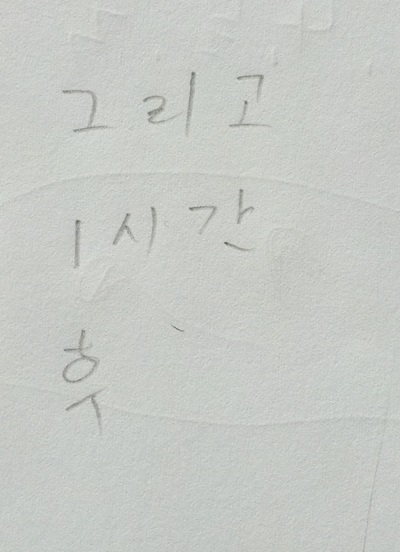 그리고
1시간
후